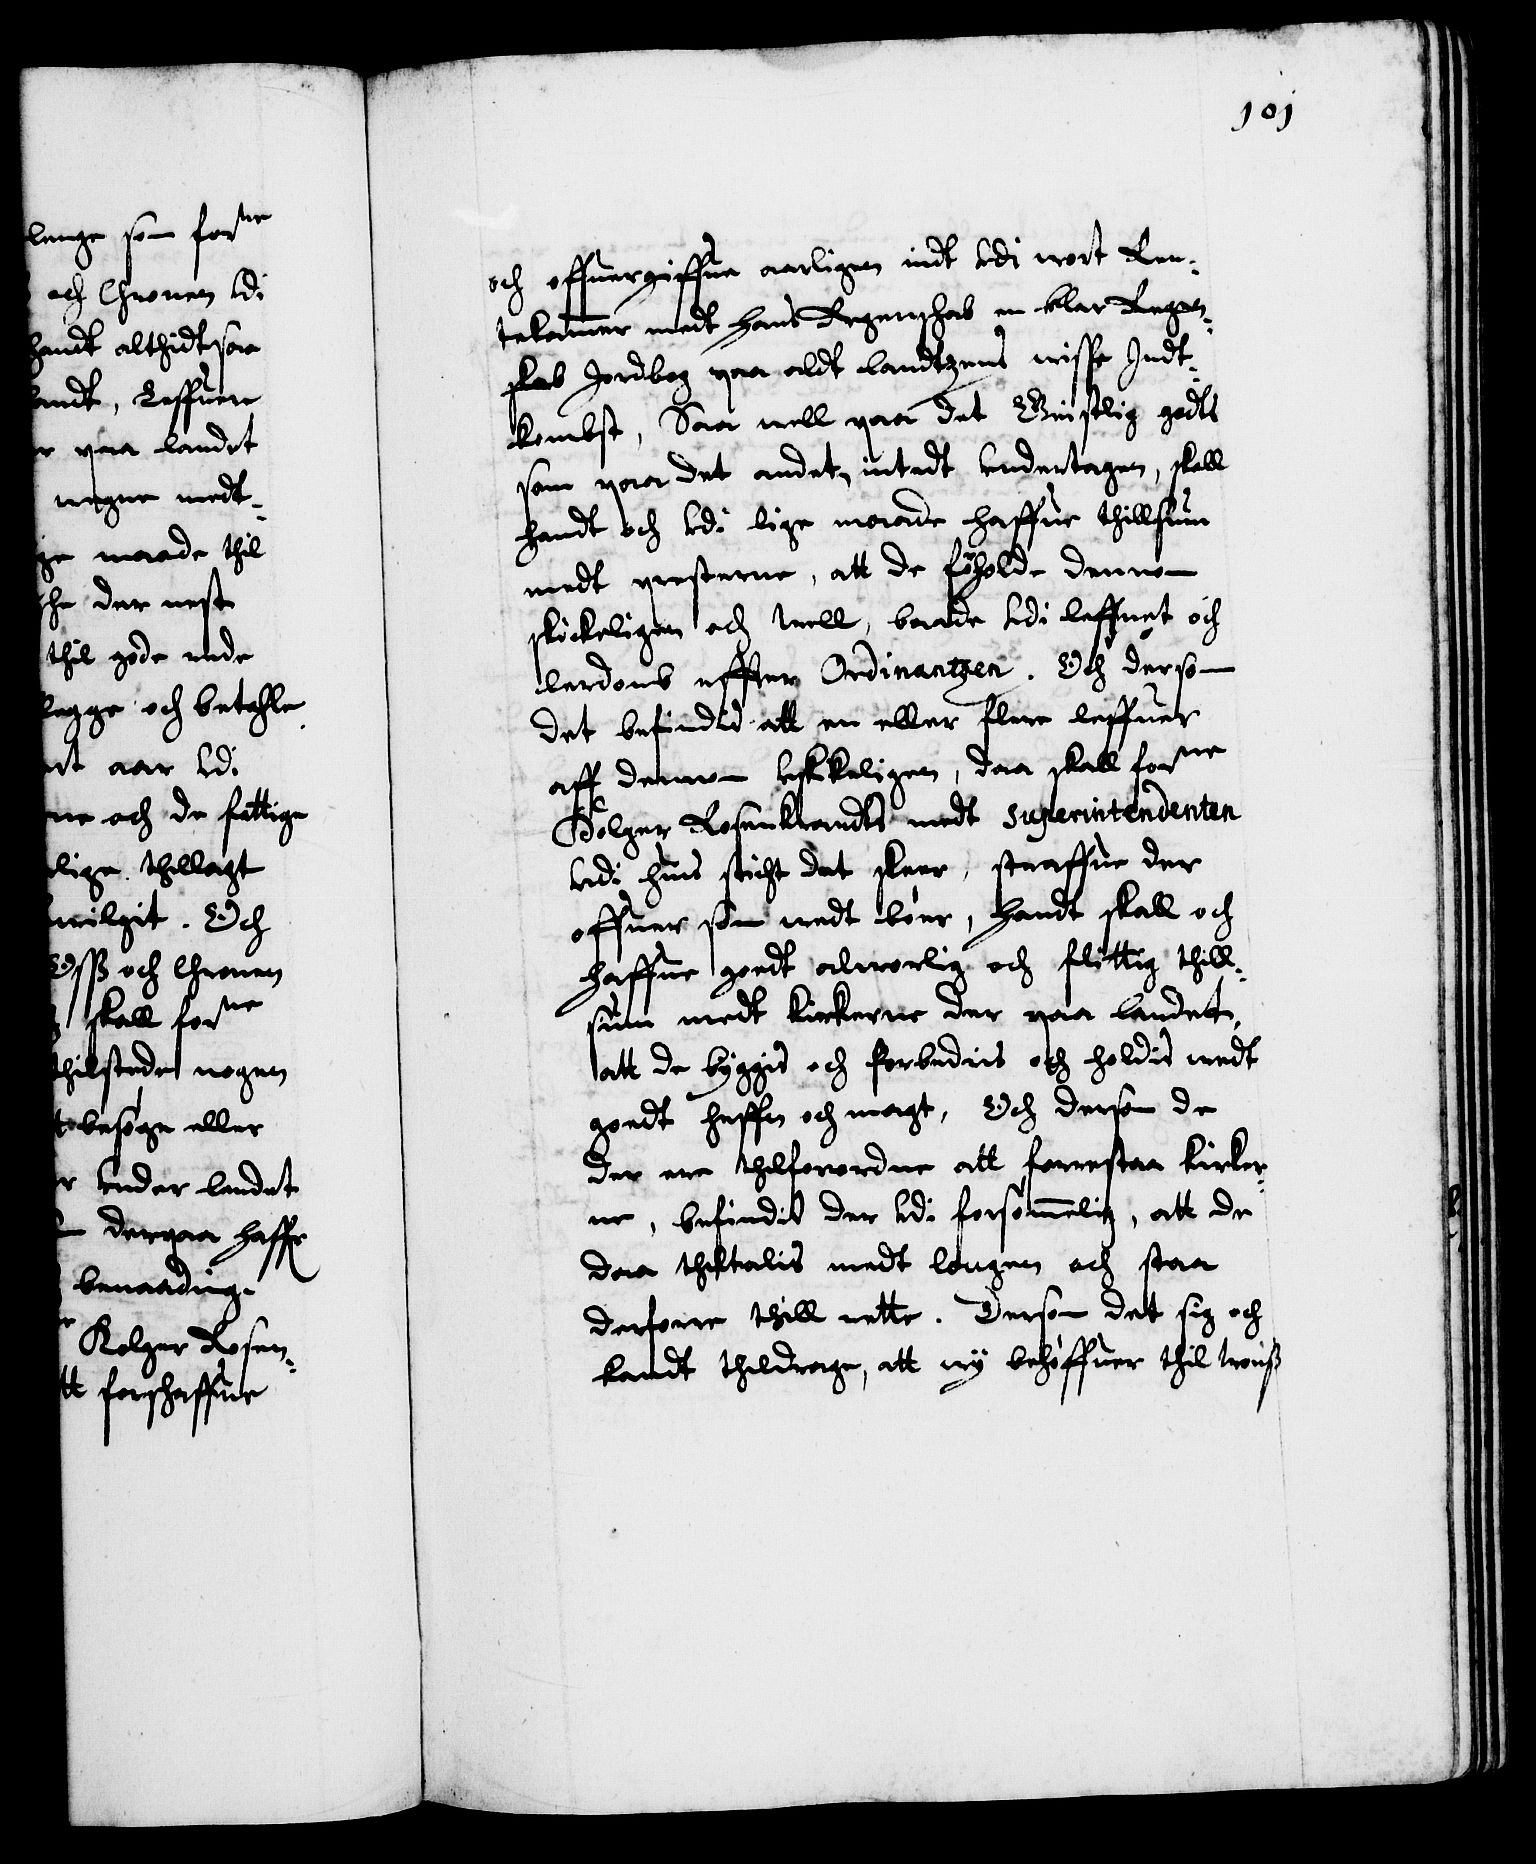 lenge som forne
och Chronen vdi
handt althidt saa
landt, Leffuere
paa landet
wegne medt-
ge maade thil
der neste
thil gode rede
legge och betahle
aar vdi
ne och de fattige
lige thillagt
wilgit. Och
Oss och Chronen
skall forne
thilstede nogen
besøge eller
vnder landet
derpaa haffe
benaading.
Holger Rosen-
tt forschaffue
101
och offuergiffue aarligen indt vdi wort Ren-
tekammer medt hans Regenschab en klar Regen-
skab Jordbog paa aldt landtzens wisse Indt-
kombst, Saa well paa det Geistlig godts
som paa det andet, intedt vndertagen, skall
handt och vdi lige maade haffue thillsiun
medt presterne, att de forholde dennom
skickeligen och well, baade vdi leffnet och
lerdomb effter Ordinantzen. Och dersom
det befindis att en eller flere leffuer
aff dennom vskikeligen, daa skall forne
Holger Rosenkrandts medt Superintendenten
vdi huis sticht det skeer, straffue der
offuer som wedt bør, Handt skall och
haffue goedt alworlig och flittig thill-
siun medt kirkerne der paa landet,
att de byggis och forbedris och holdis wedt
goedt heffn och magt, Och dersom de
der ere thilforordne att forrestaa kirker-
ne, befindis der vdi forsømmelig, att de
daa thiltalis medt lougen och staa
derforre thill rette. Dersom det sig och
kandt thildrage, att wy behøffuer thil wortiss